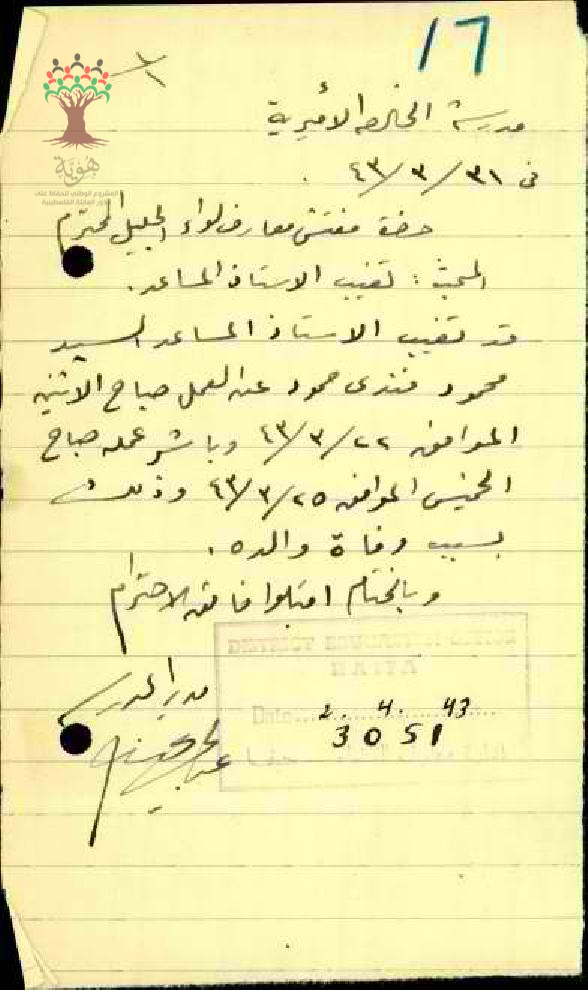 17
هوية
المشروع الوطني للحفاظ على
جذور العائلة الفلسطينية
مدرسة الخالصة الأميرية
في ٣١/٣/٤٣
حضرة مفتش معارف لواء الجليل المحترم
المبحث: تغيب الاستاذ المساعد.
قد تغيب الاستاذ المساعد السيد
محمود حمود عن العمل صباح الاثنين
الموافق ٢٢/٣/٤٣ وباشر عمله صباح
الخميس الموافق ٢٥/٣/٤٣ وذلك
بسبب وفاة والده.
وبالختام اقبلوا فائق الاحترام
مدير المدرسة
DISTRICT EDUCATION OFFICE
HAIFA
Date 2. 4. 43
3051